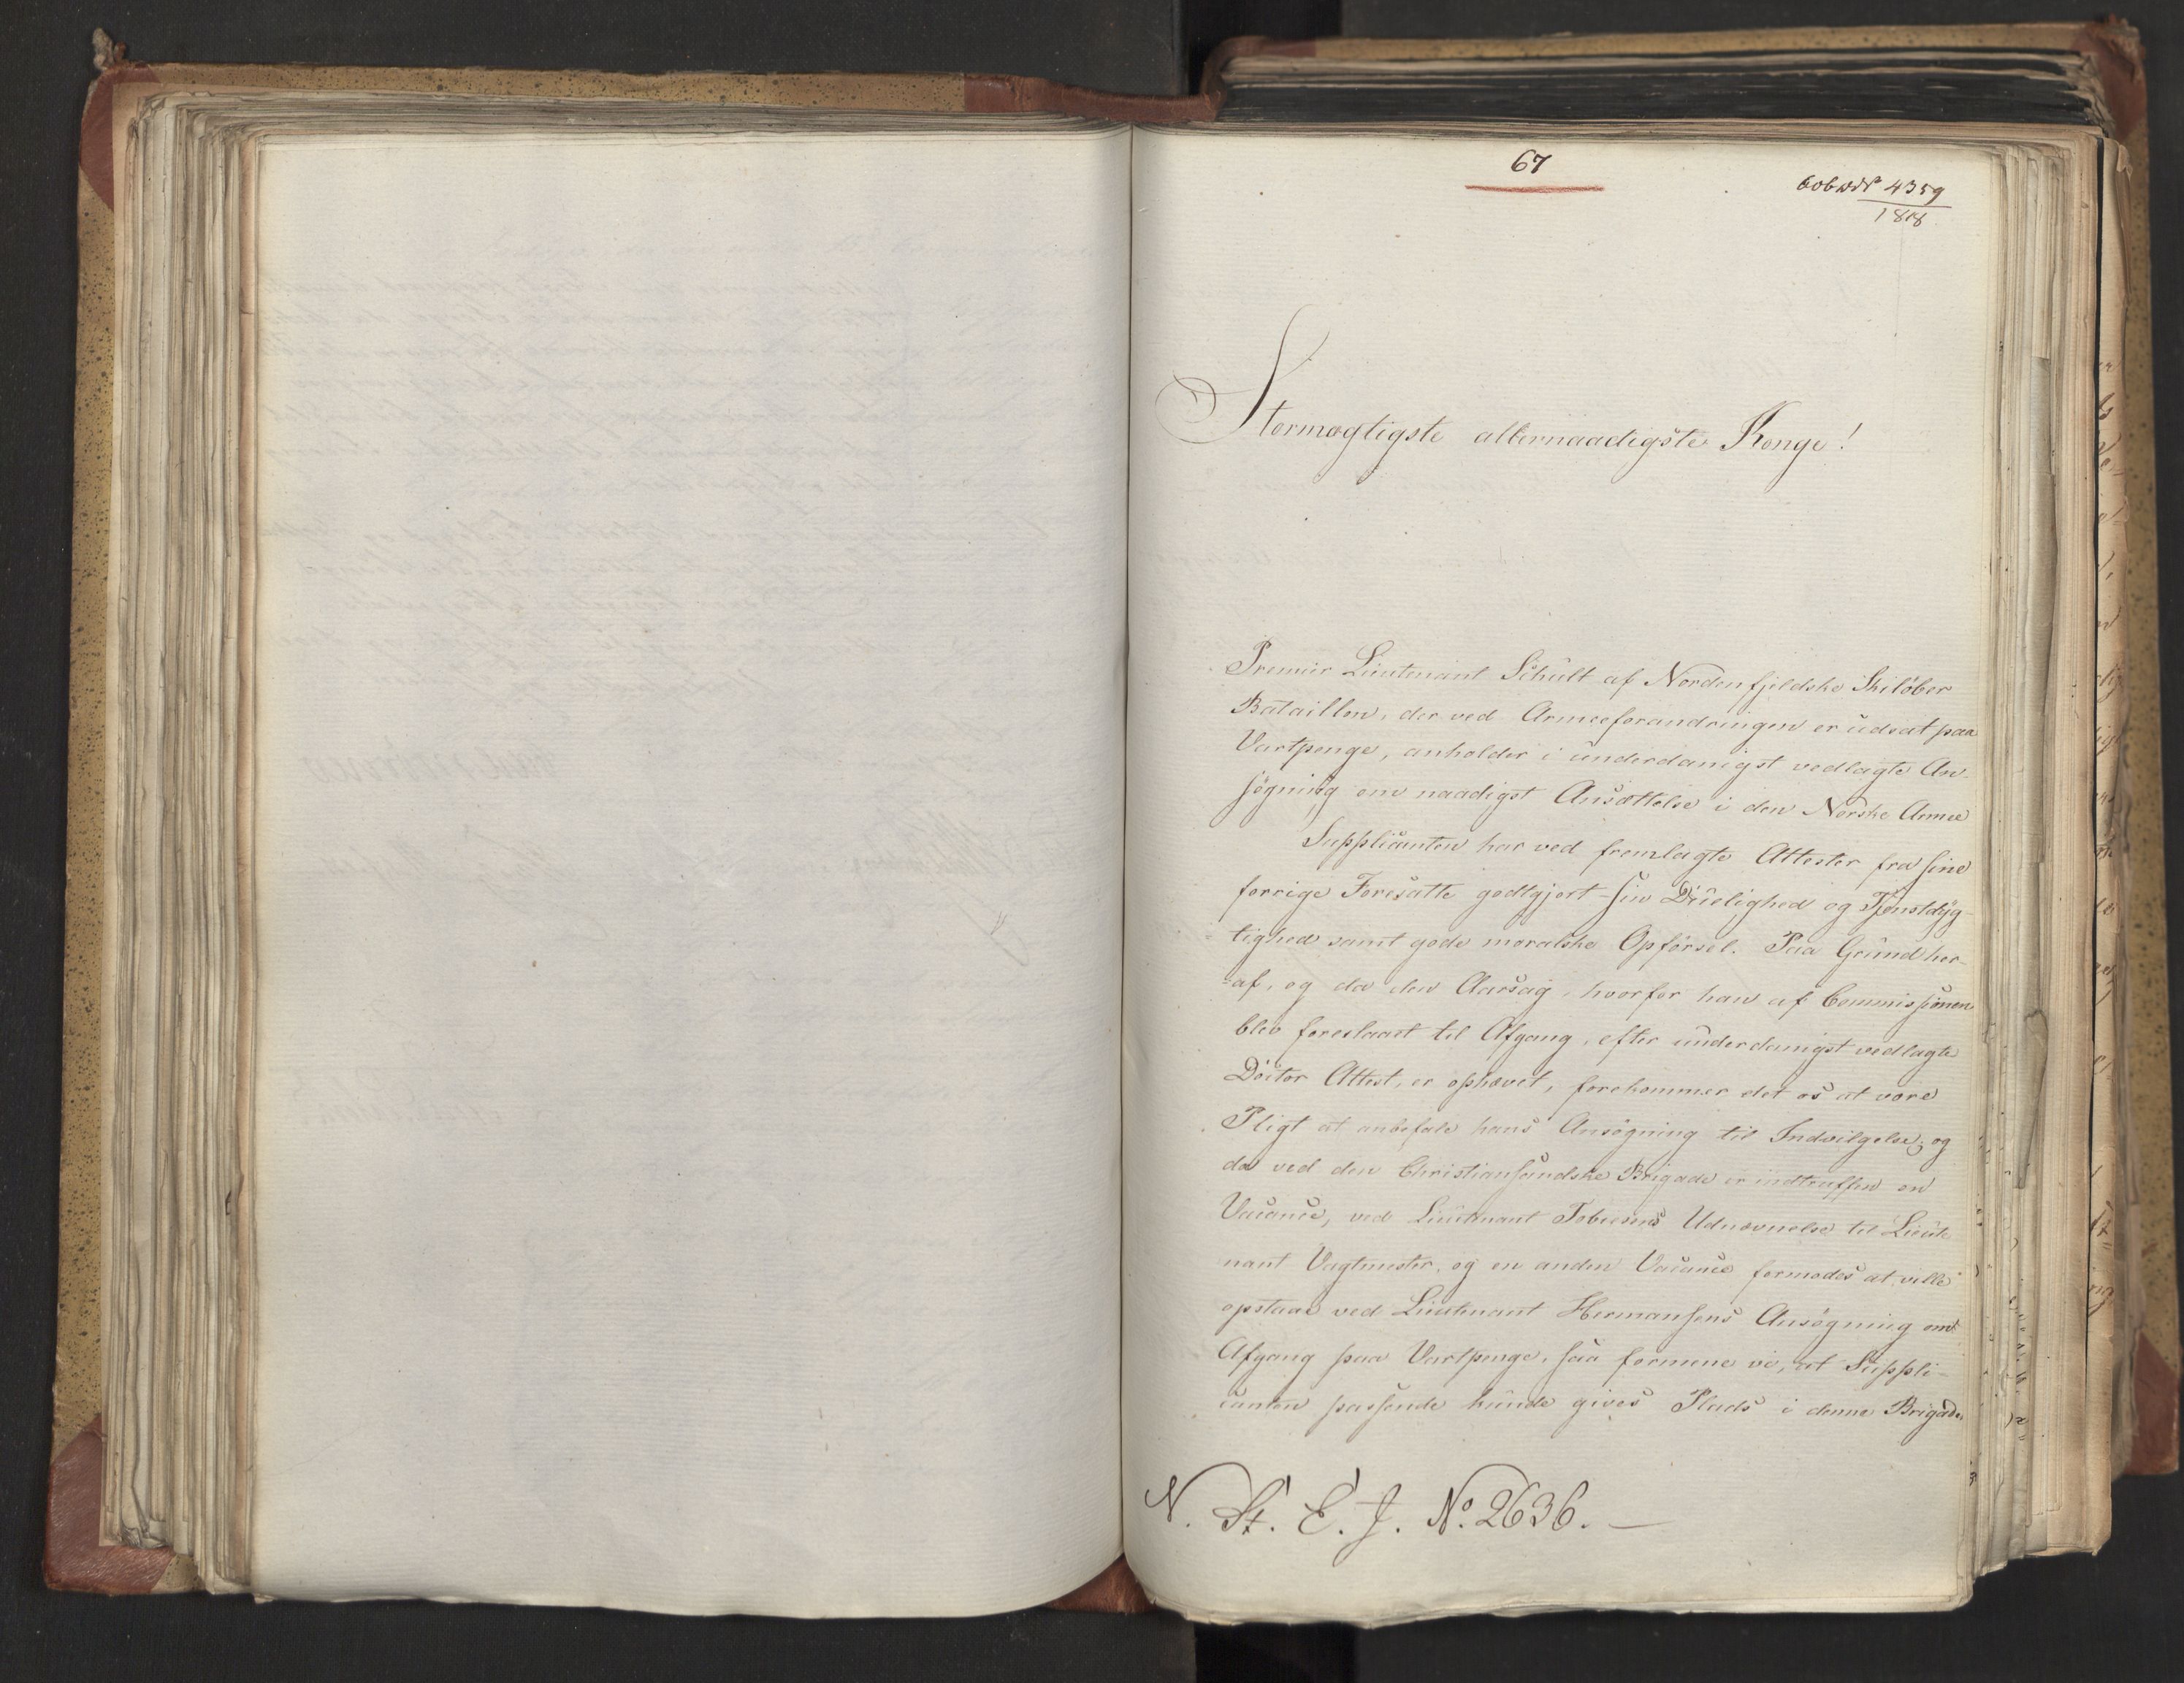 67
4359
1818
Stormægtigste allernaadigste Konge!
Premier Lieutenant Schult af Nordenfjeldske Skilöber
Bataillon, der ved Armeeforandringen er udsat paa
Vartpenge, anholder i underdanigst vedlagte An-
søgning om naadigst Ansættelse i den Norske Armee
Supplicanten har ved fremlagte Attester fra sine
forrige Foresatte godtgjort sin Duelighed og Tjenstdyg-
tighed samt gode moralske Opførsel. Paa Grund her-
af, og da den Aarsag, hvorfor han af Commissionen
blev foreslaaet til Afgang, efter underdanigst vedlagte
Doctor Attest, er ophævet, forekommer det os at være
Pligt at anbefale hans Ansøgning til Indvilgelse; og
da ved den Christiansandske Brigade er indtruffen en
Vacance, ved Lieutenant Udnævnelse til Lieute-
nant Vagtmester, og en anden Vacance formodes at ville
opstaae ved Lieutenant Hermansens Ansøgning om
Afgang paa Vartpenge, saa formene vi, at Suppli-
canten passende kunde gives Plads i denne Brigade
N. St. E. J. No. 2636. —